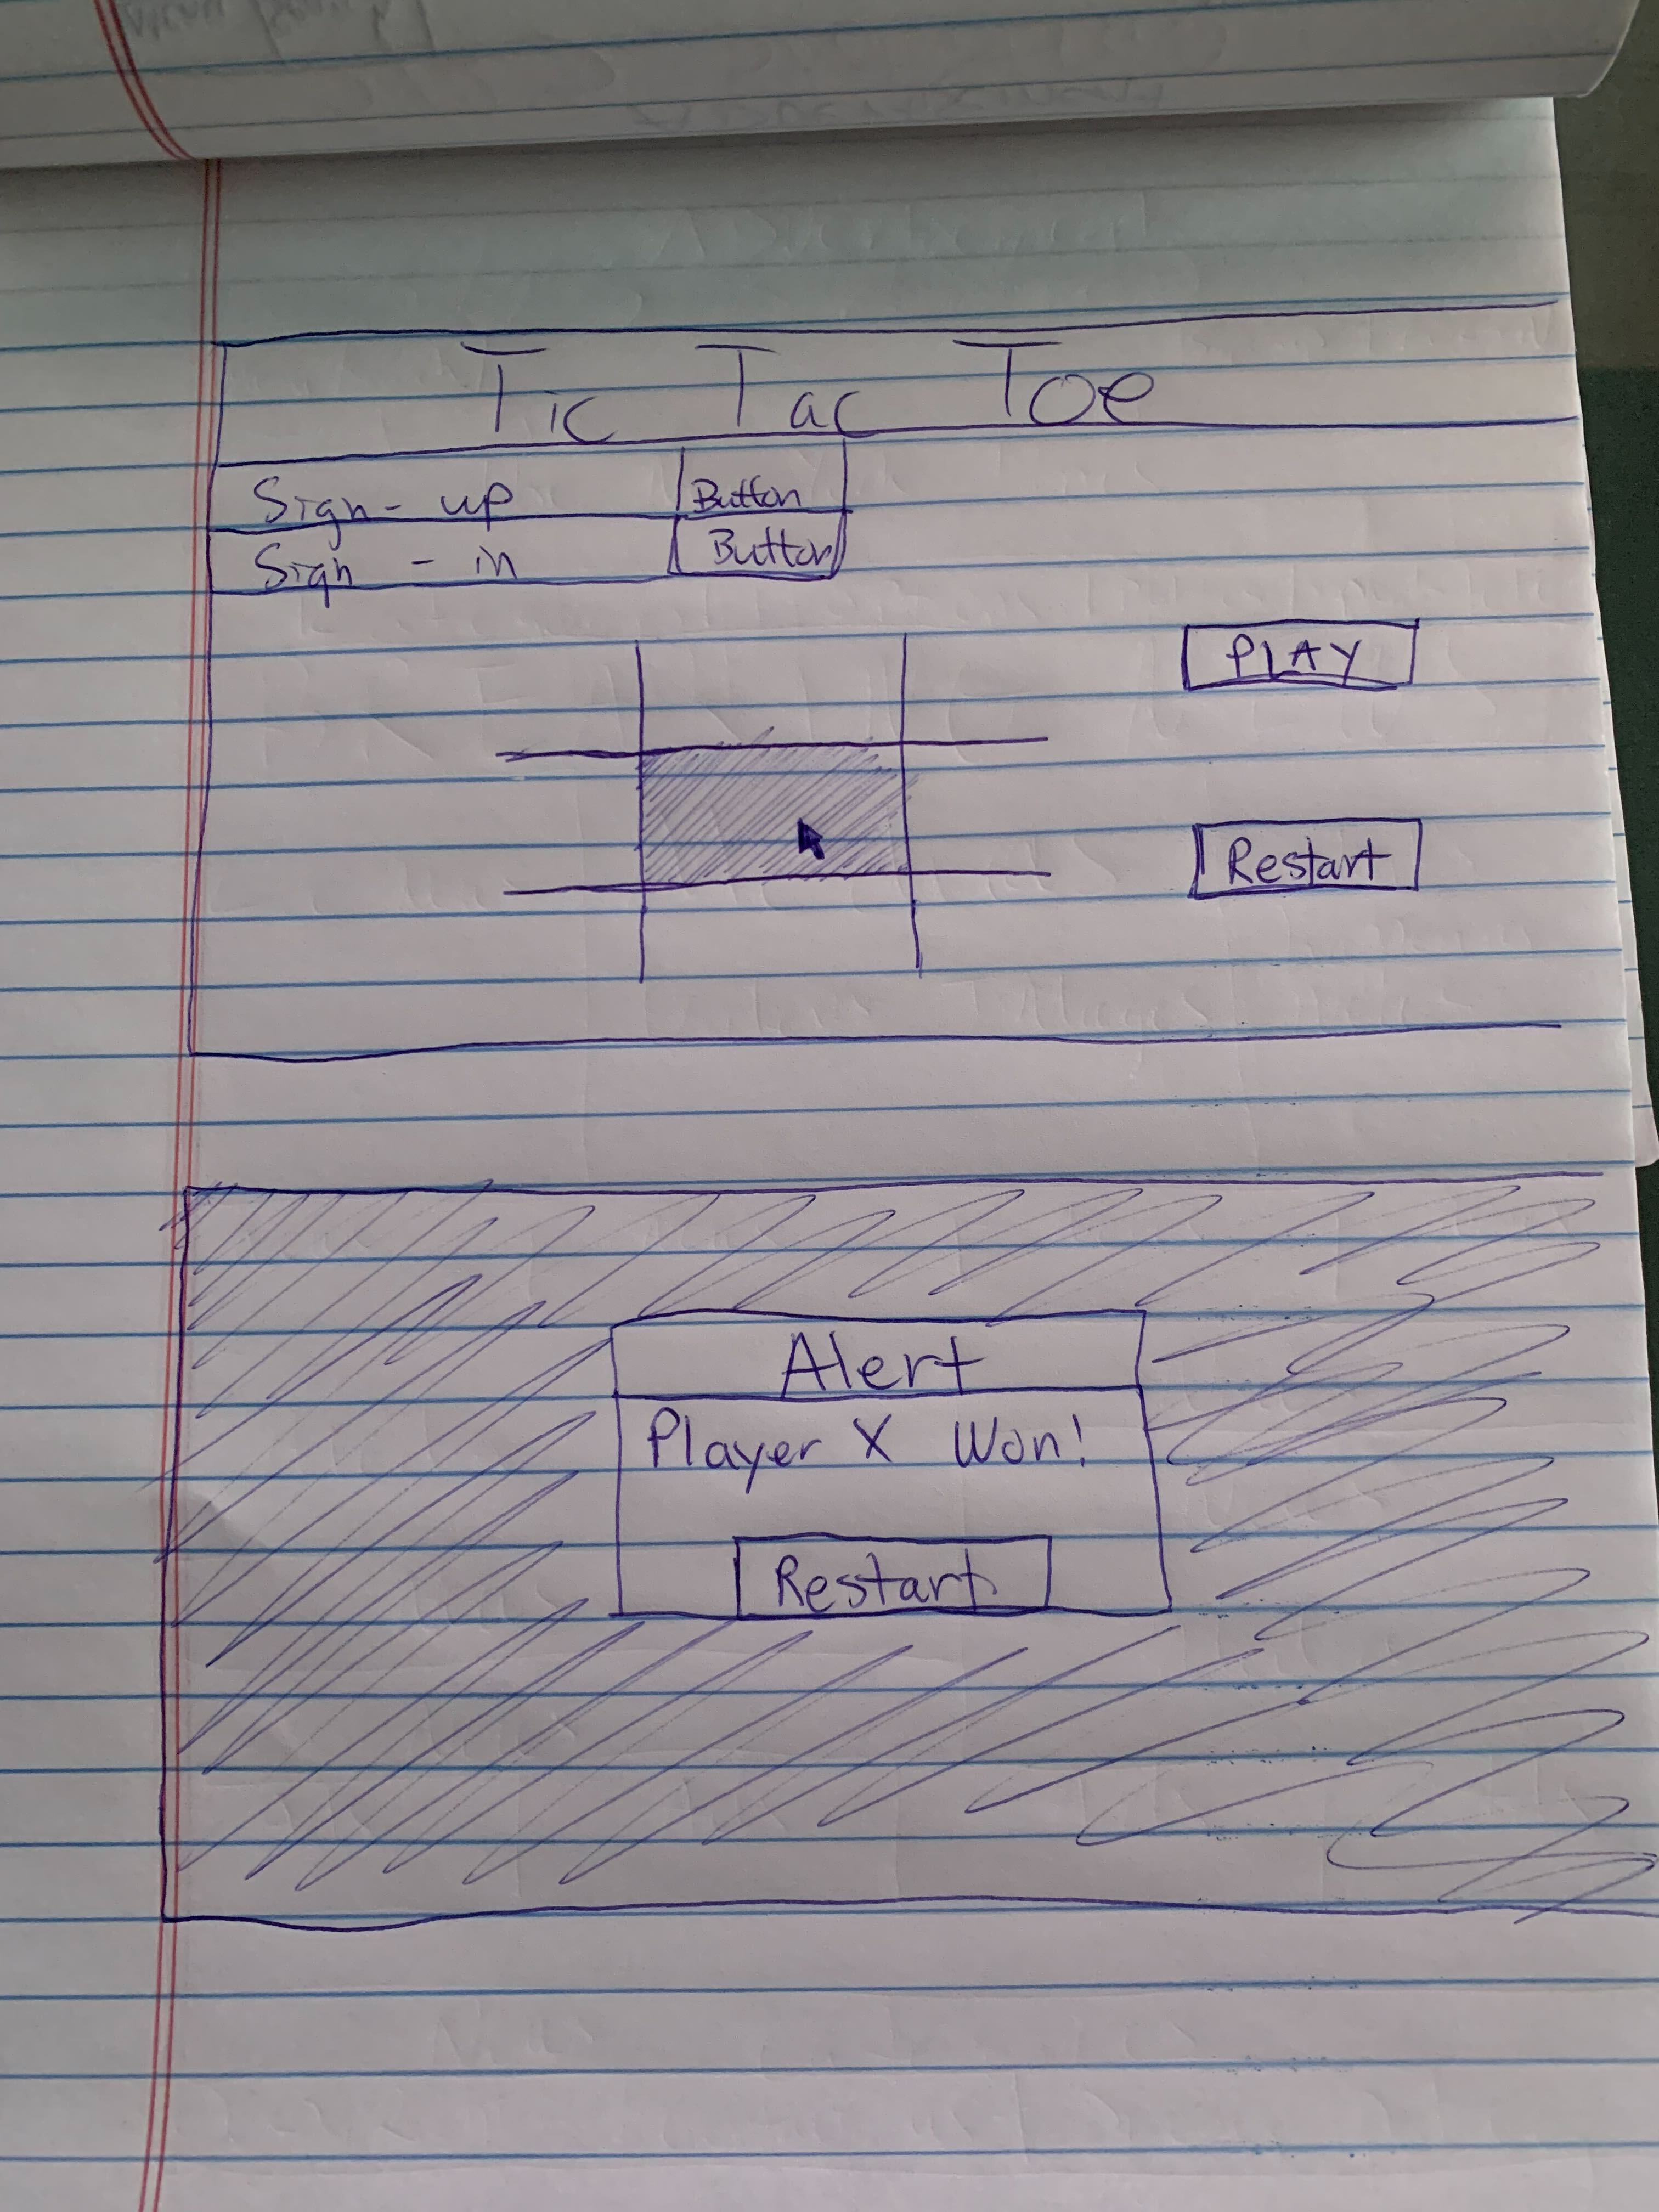 Tic Tac Toe
Sign-up Button
Sign - in Button
PLAY
Restart
Alert
Player X Won!
Restart